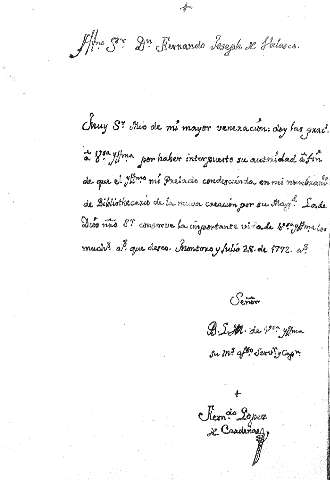 +
Yllmo. Sor. Dn. Fernando Joseph de Velasco.
Muy Sr. Mio de mi mayor veneracion: doy las grac.s
a Vssa. Yllma. por haber interpuesto su autoridad a fin
de que el Yllmo. mi Prelado condescienda en mi nombram.to
de Bibliothecario de la nueva creacion por su Mag.d La de
Dios nro. Sr. conserve la importante vida de Vssa. Yllma. los
much.s a.s que deseo. Montoro y Julio 28. de 1772. a.s
Señor
B. L. M. de Vssa. Yllma.
su Mas afto. Serv.r y Cap.n
+
Fern.do Lopez
de Cardenas